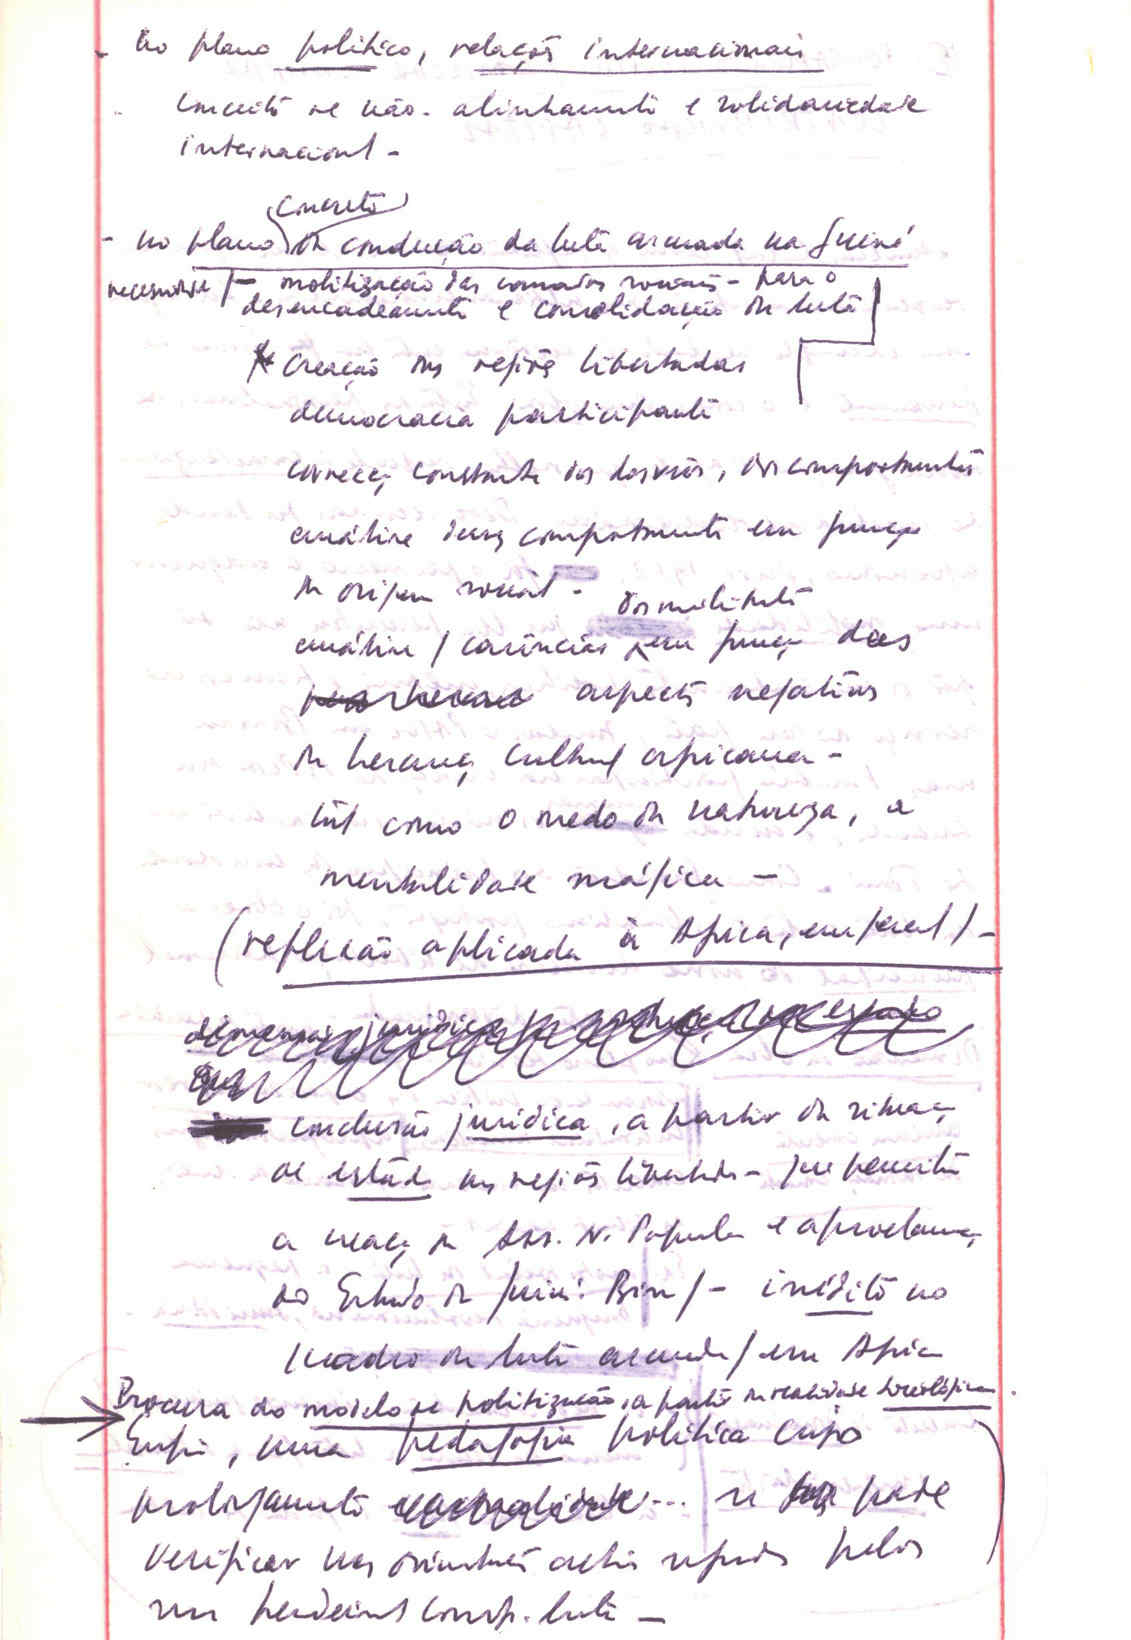 - No plano político, relações internacionais
conceito de não-alinhamento e solidariedade
internacional -
concreto
- no plano da condução da luta armada na Guiné
necessidade / - mobilização das camadas sociais - para o
desencadeamento e consolidação da luta
* Creação das regiões libertadas
democracia participante
correcç constante dos desvios, dos comportamentos
análise desses comportamentos em função
da origem social -
dos militantes
análise / carências em função das
aspectos negativos
da herança cultural africana -
tal como o medo da natureza, a
mentalidade mágica -
(reflexão aplicada à Africa, em geral) -
dimensão jurídica do estado
conclusão jurídica, a partir da situaç
de estado nas regiões libertadas - que permitiu
a creaç da Ass. N. Popular e a proclamaç
do Estado da Guiné Biss / - inédito no
quadro da luta armada / em Africa
Procura do modelo de politização, a partir da realidade sociológica
Enfim, uma pedagogia política cujo
prolongamento ... se pode
verificar nas orientações actuais seguidas pelos
seus herdeiros comp. luta -